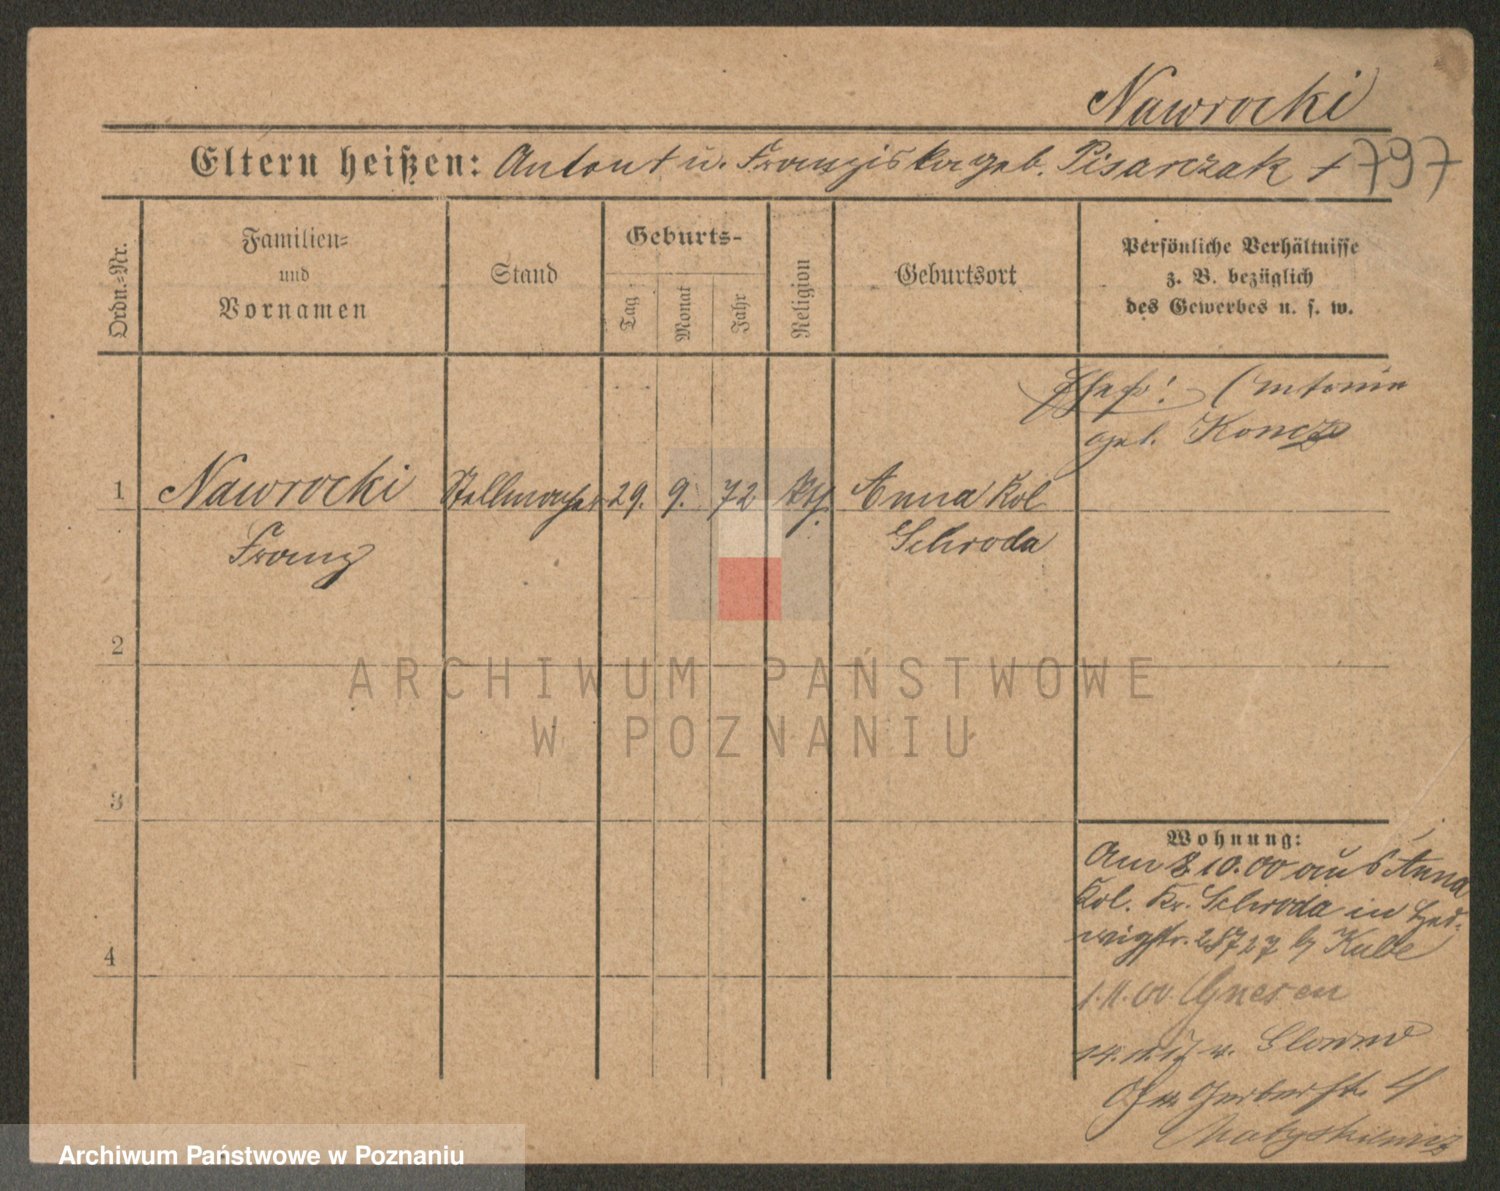 Nawrocki
Eltern heißen: Anton † u. Franziska geb. Pisarczak †
797
Ordn.-Nr.
Familien-
und
Vornamen
Stand
Geburts-
Tag
Monat
Jahr
Religion
Geburtsort
Persönliche Verhältnisse
z. B. bezüglich
des Gewerbes u. s. w.
Antonia
geb.
1 Nawrocki Stellmacher 29. 9. 72 kth. Anna Kol
Franz Schroda
2
3
4
Wohnung:
Am 8.10.00 aus Anna
Kol. Kr. Schroda in Hed-
wigstr. b/ Kulbe
1.11.00 Gnesen
Gerberstr. 4
ARCHIWUM PAŃSTWOWE
W POZNANIU
Archiwum Państwowe w Poznaniu